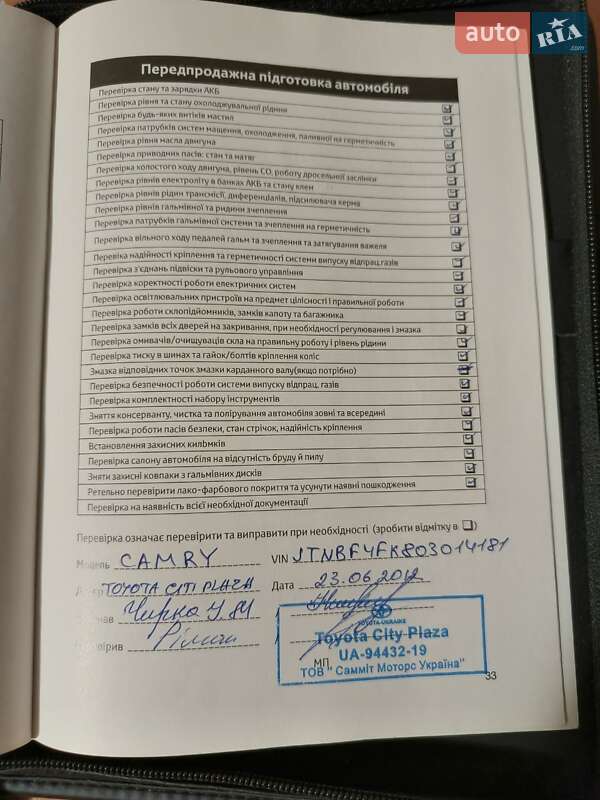 auto RIA .com
Передпродажна підготовка автомобіля
Перевірка стану та зарядки АКБ
Перевірка рівня та стану охолоджувальної рідини
Перевірка будь-яких витіків мастил
Перевірка патрубків систем мащення, охолодження, паливної на герметичність
Перевірка рівня масла двигуна
Перевірка приводних пасів: стан та натяг
Перевірка холостого ходу двигуна, рівень СО, роботу дросельної заслінки
Перевірка рівнів електроліту в банках АКБ та стану клем
Перевірка рівнів рідин трансмісії, диференціалів, підсилювача керма
Перевірка рівнів гальмівної та ридини зчеплення
Перевірка патрубків гальмівної системи та зчеплення на герметичність
Перевірка вільного ходу педалей гальм та зчеплення та затягування важеля
Перевіка надійності кріплення та герметичності системи випуску відпрац.газів
Перевірка з'єднань підвіски та рульового управління
Перевірка коректності роботи електричних систем
Перевірка освітлювальних пристроїв на предмет цілісності і правильної роботи
Перевірка роботи склопідйомників, замків капоту та багажника
Перевірка замків всіх дверей на закривання, при необхідності регулювання і змазка
Перевірка омивачів/очищувачів скла на правильну роботу і рівень рідини
Перевірка тиску в шинах та гайок/болтів кріплення коліс
Змазка відповідних точок змазки карданного валу(якщо потрібно)
Перевірка безпечності роботи системи випуску відпрац. газів
Перевірка комплектності набору інструментів
Зняття консерванту, чистка та полірування автомобіля зовні та всередині
Перевірка роботи пасів безпеки, стан стрічок, надійність кріплення
Встановлення захисних килbмків
Перевірка салону автомобіля на відсутність бруду й пилу
Зняти захисні ковпаки з гальмівних дисків
Ретельно перевірити лако-фарбового покриття та усунути наявні пошкодження
Перевірка на наявність всієї необхідної документації
Перевірка означає перевірити та виправити при необхідності (зробити відмітку в )
Модель CAMRY VIN JTNBF4FK803014181
TOYOTA CITI PLAZA Дата 23.06.2012
TOYOTA-UKRAINE
Toyota City Plaza
UA-94432-19
МП
ТОВ "Самміт Моторс Україна"
33